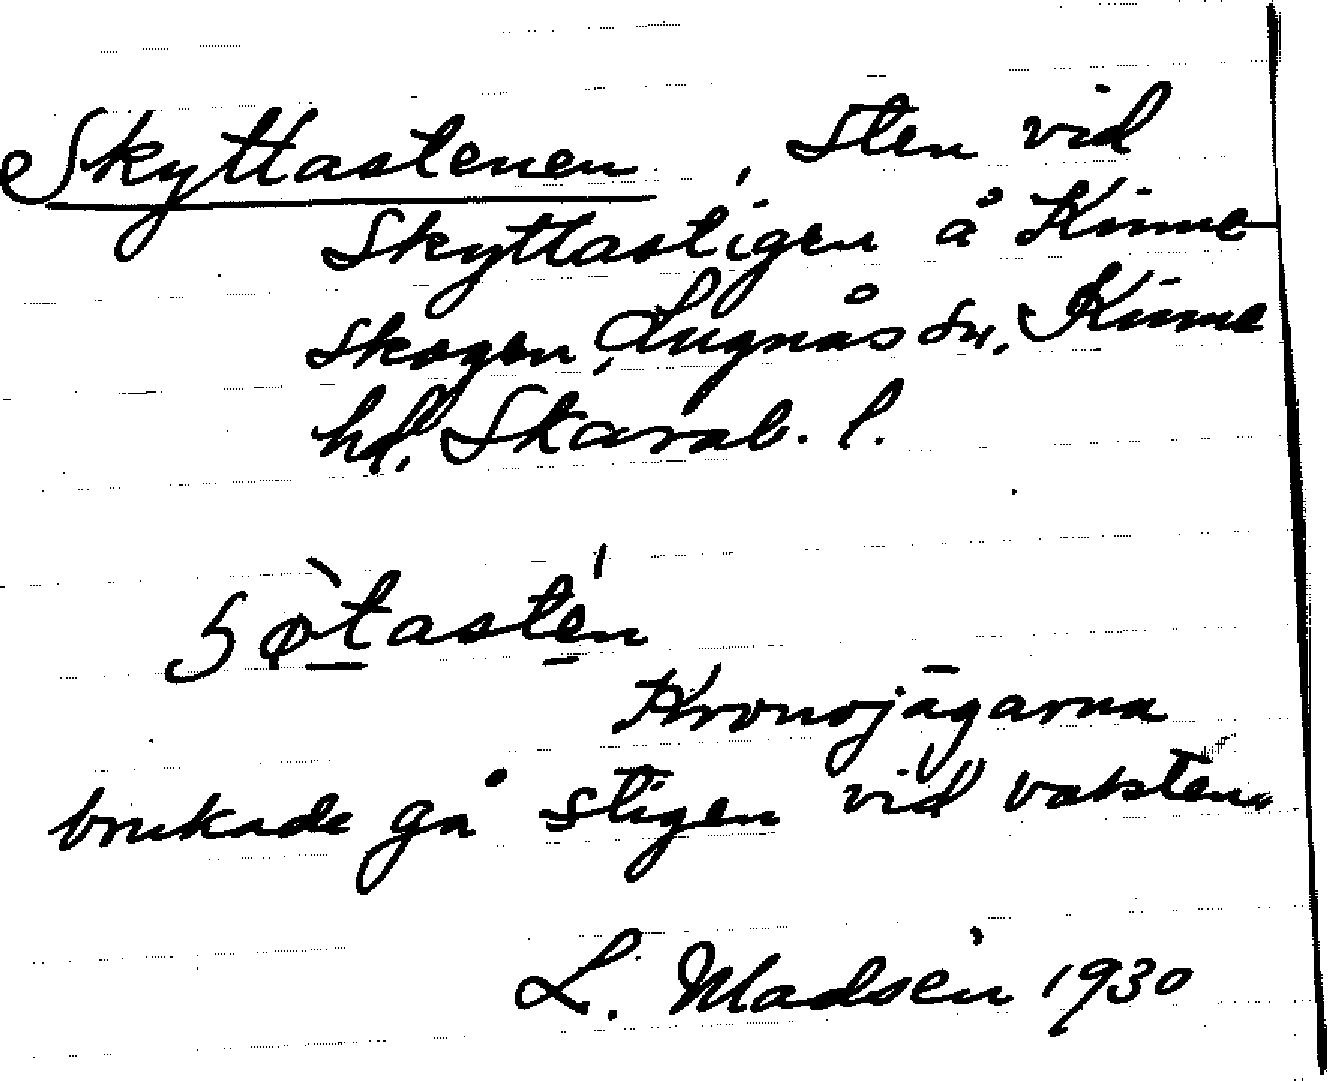 Skyttastenen, sten vid
Skyttastigen å Kinne-
skogen, Lugnås sn, Kinne
hd. Skarab. l.
Kronojägarna
brukade gå stigen vid
L. Madsén 1930